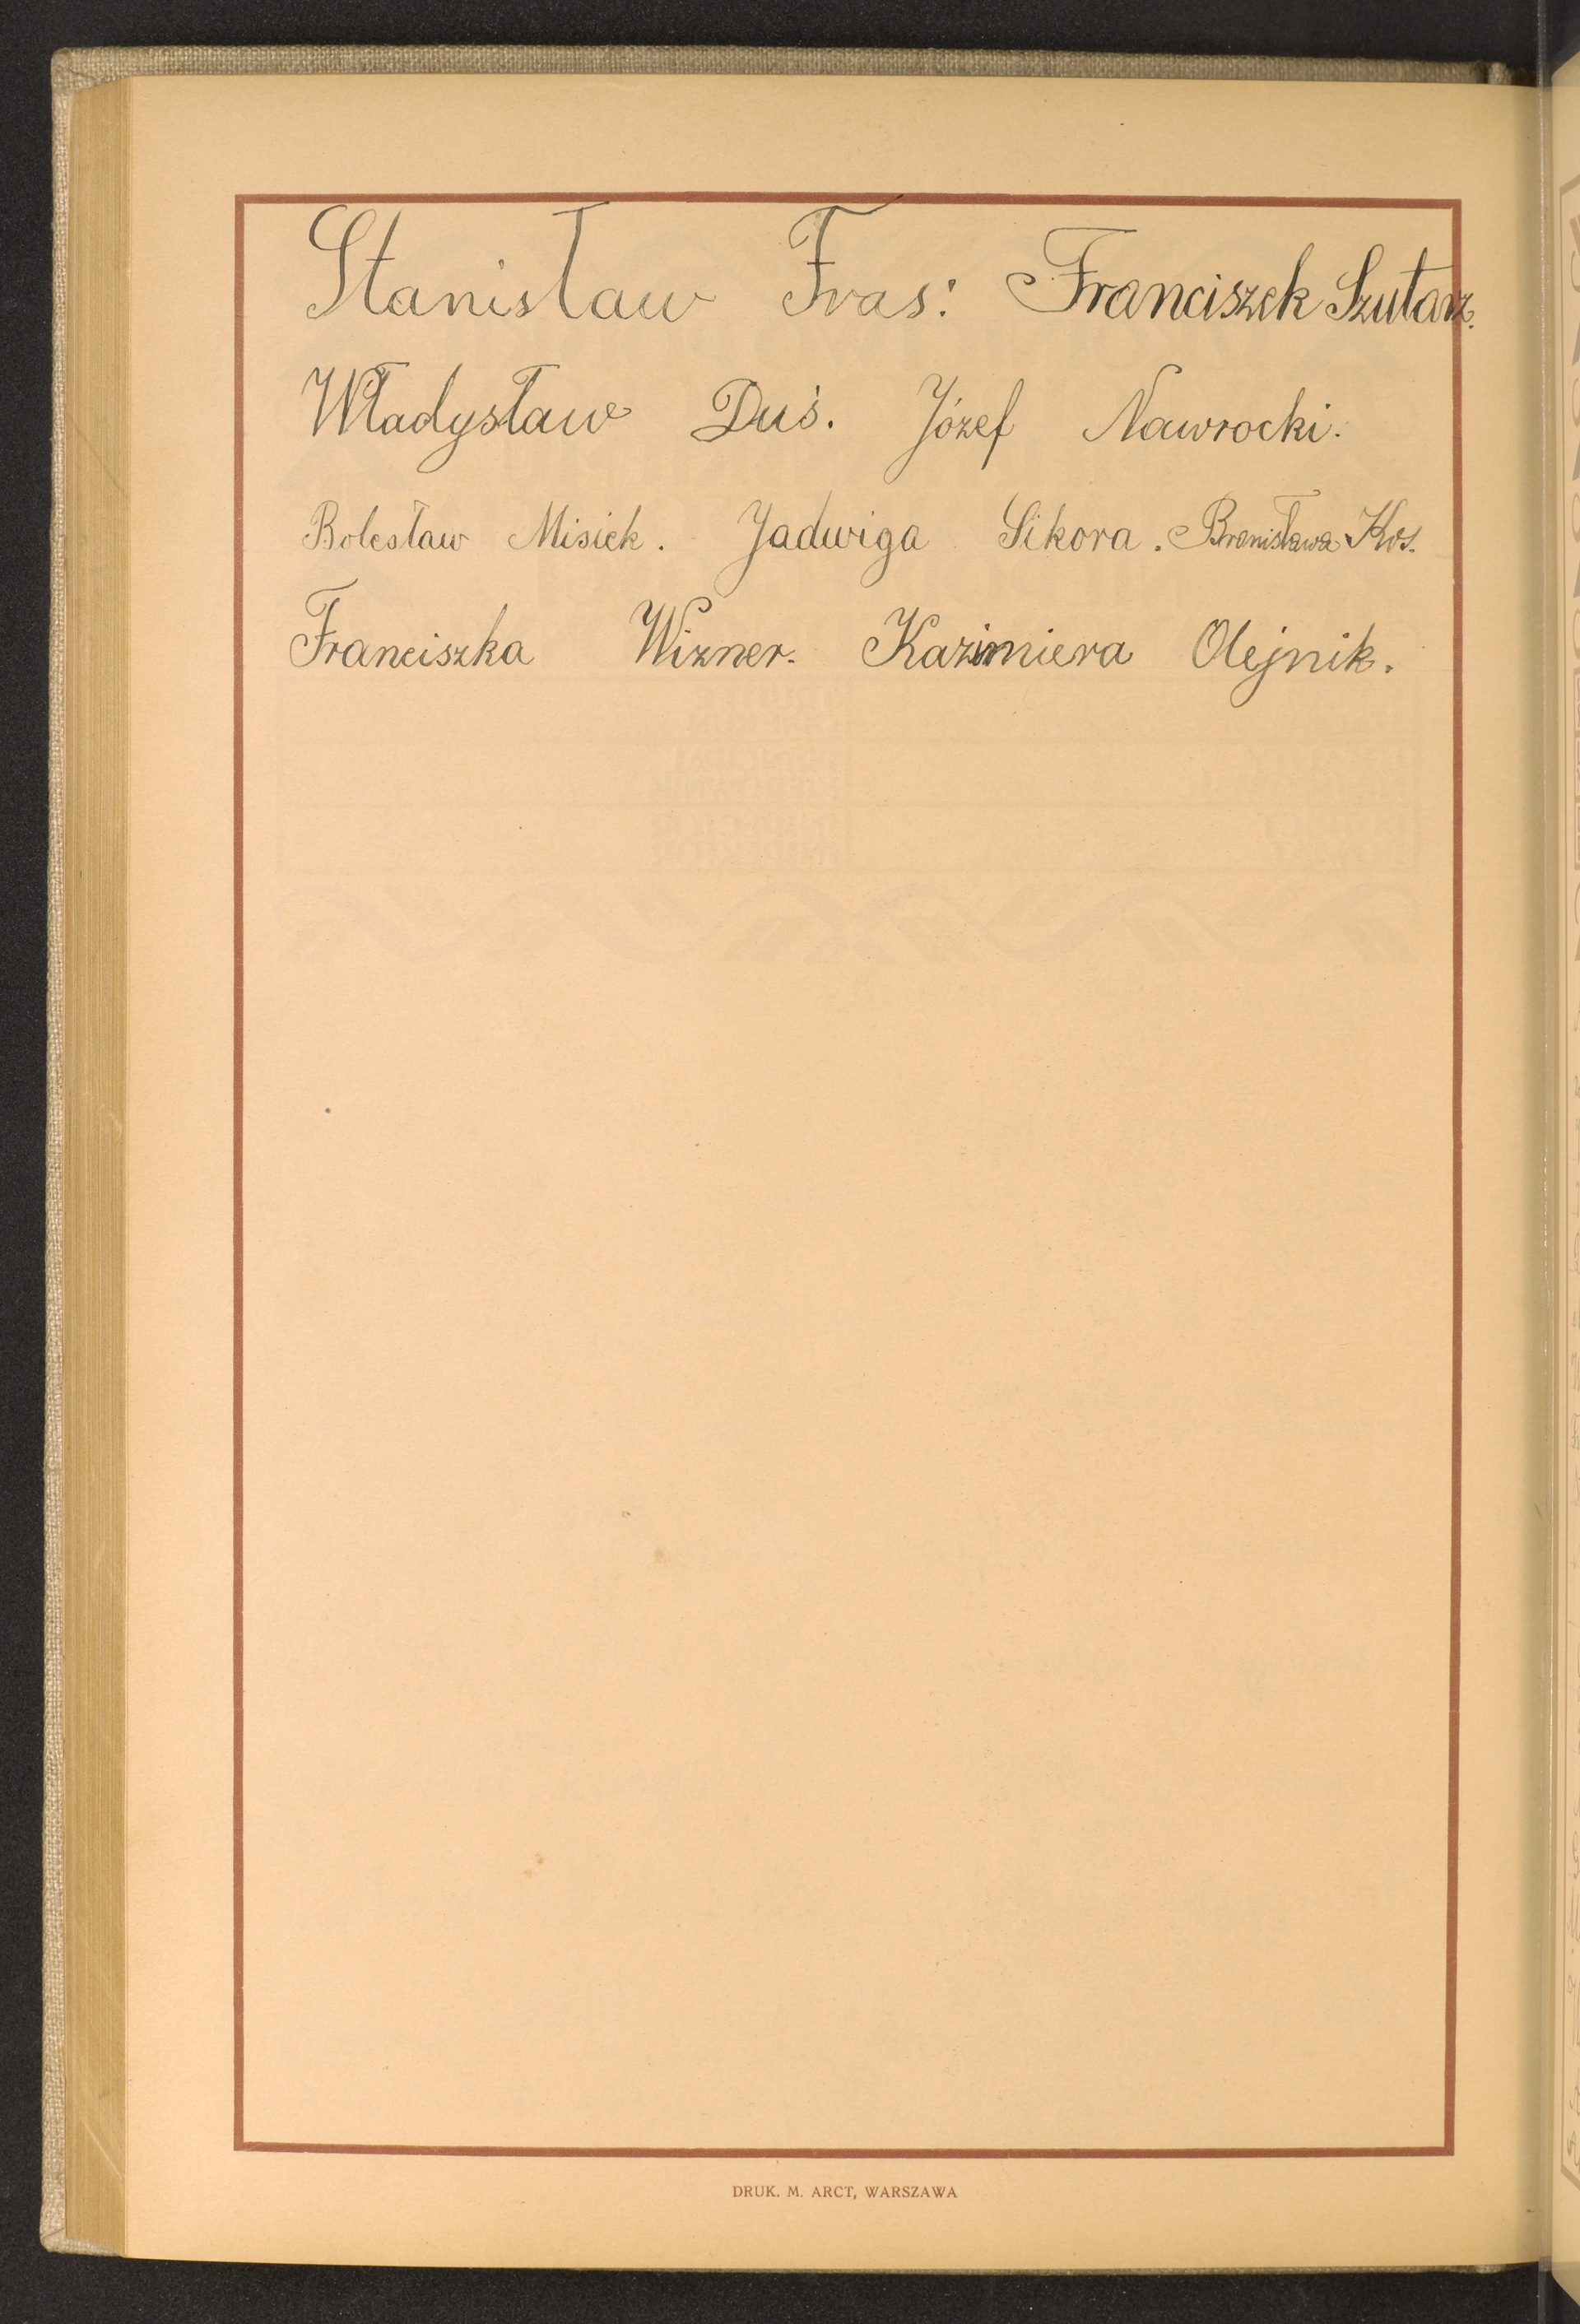 Stanisław Fras. Franciszek Szutarz.
Władysław Duś. Józef Nawrocki.
Bolesław Misiek. Jadwiga Sikora. Bronisława Kos.
Franciszka Wizner. Kazimiera Olejnik.
DRUK. M. ARCT, WARSZAWA